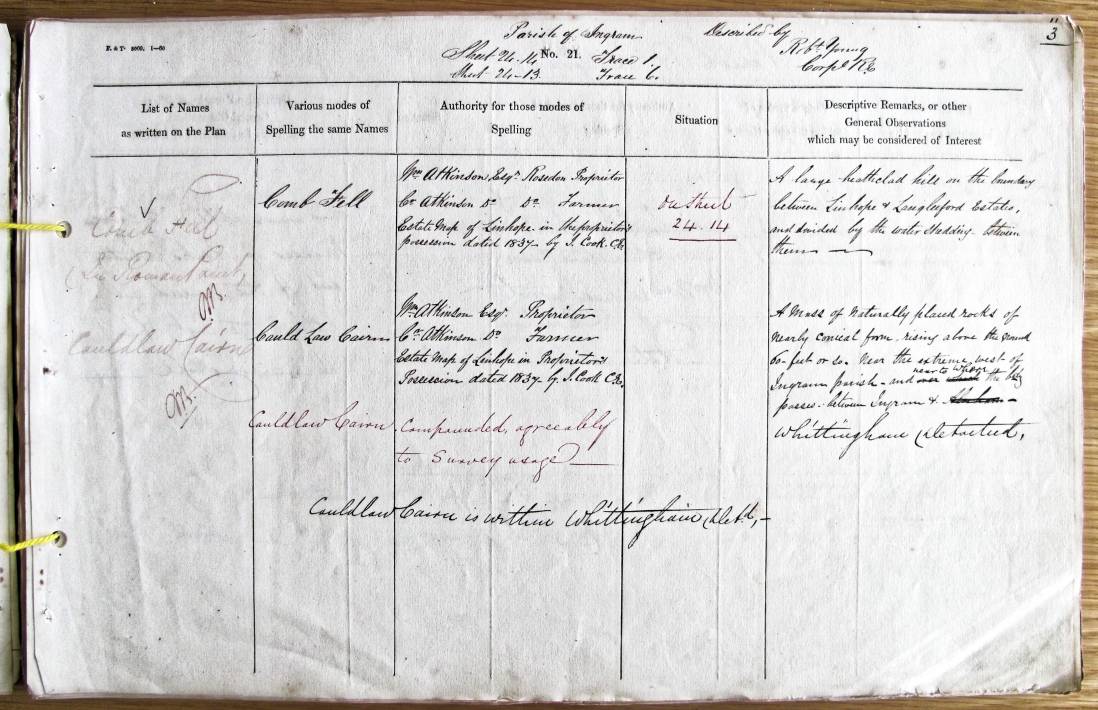 E. & T. 2000, 1-60
Parish of Ingram
Sheet 24.14 No. 21. Trace 1.
Sheet 24-13 Trace 6.
Described by
Robt Young
Corpl RE
3
List of Names
as written on the Plan
Various modes of
Spelling the same Names
Authority for those modes of
Spelling
Situation
Descriptive Remarks, or other
General Observations
which may be considered of Interest
Comb Fell
(In Roman Print)
Comb Fell
Wm Atkinson Esqr. Rosedon Proprietor
Cs. Atkinson Do Do Farmer
Estate Map of Linhope in the proprietor's
possession dated 1837 by J. Cook C.E.
On Sheet
24.14
A large heathclad hill on the boundary
between Linhope & Langleeford Estates,
and divided by the water Shedding between
them
Cauldlaw Cairn
Cauld Law Cairn
Wm. Atkinson Esqr. Proprietor
Cs. Atkinson Do Farmer
Estate Map of Linhope in Proprietor's
Possession dated 1837 by J. Cook C.E.
A Mass of Naturally placed rocks of
nearly conical form rising above the ground
60 feet or so. Near the extreme west of
Ingram parish and near to where the bdy
passes between Ingram &
Whittingham (detached)
Cauldlaw Cairn. Compounded, agreeably
to Survey usage
Cauldlaw Cairn is within Whittingham (Detd.)